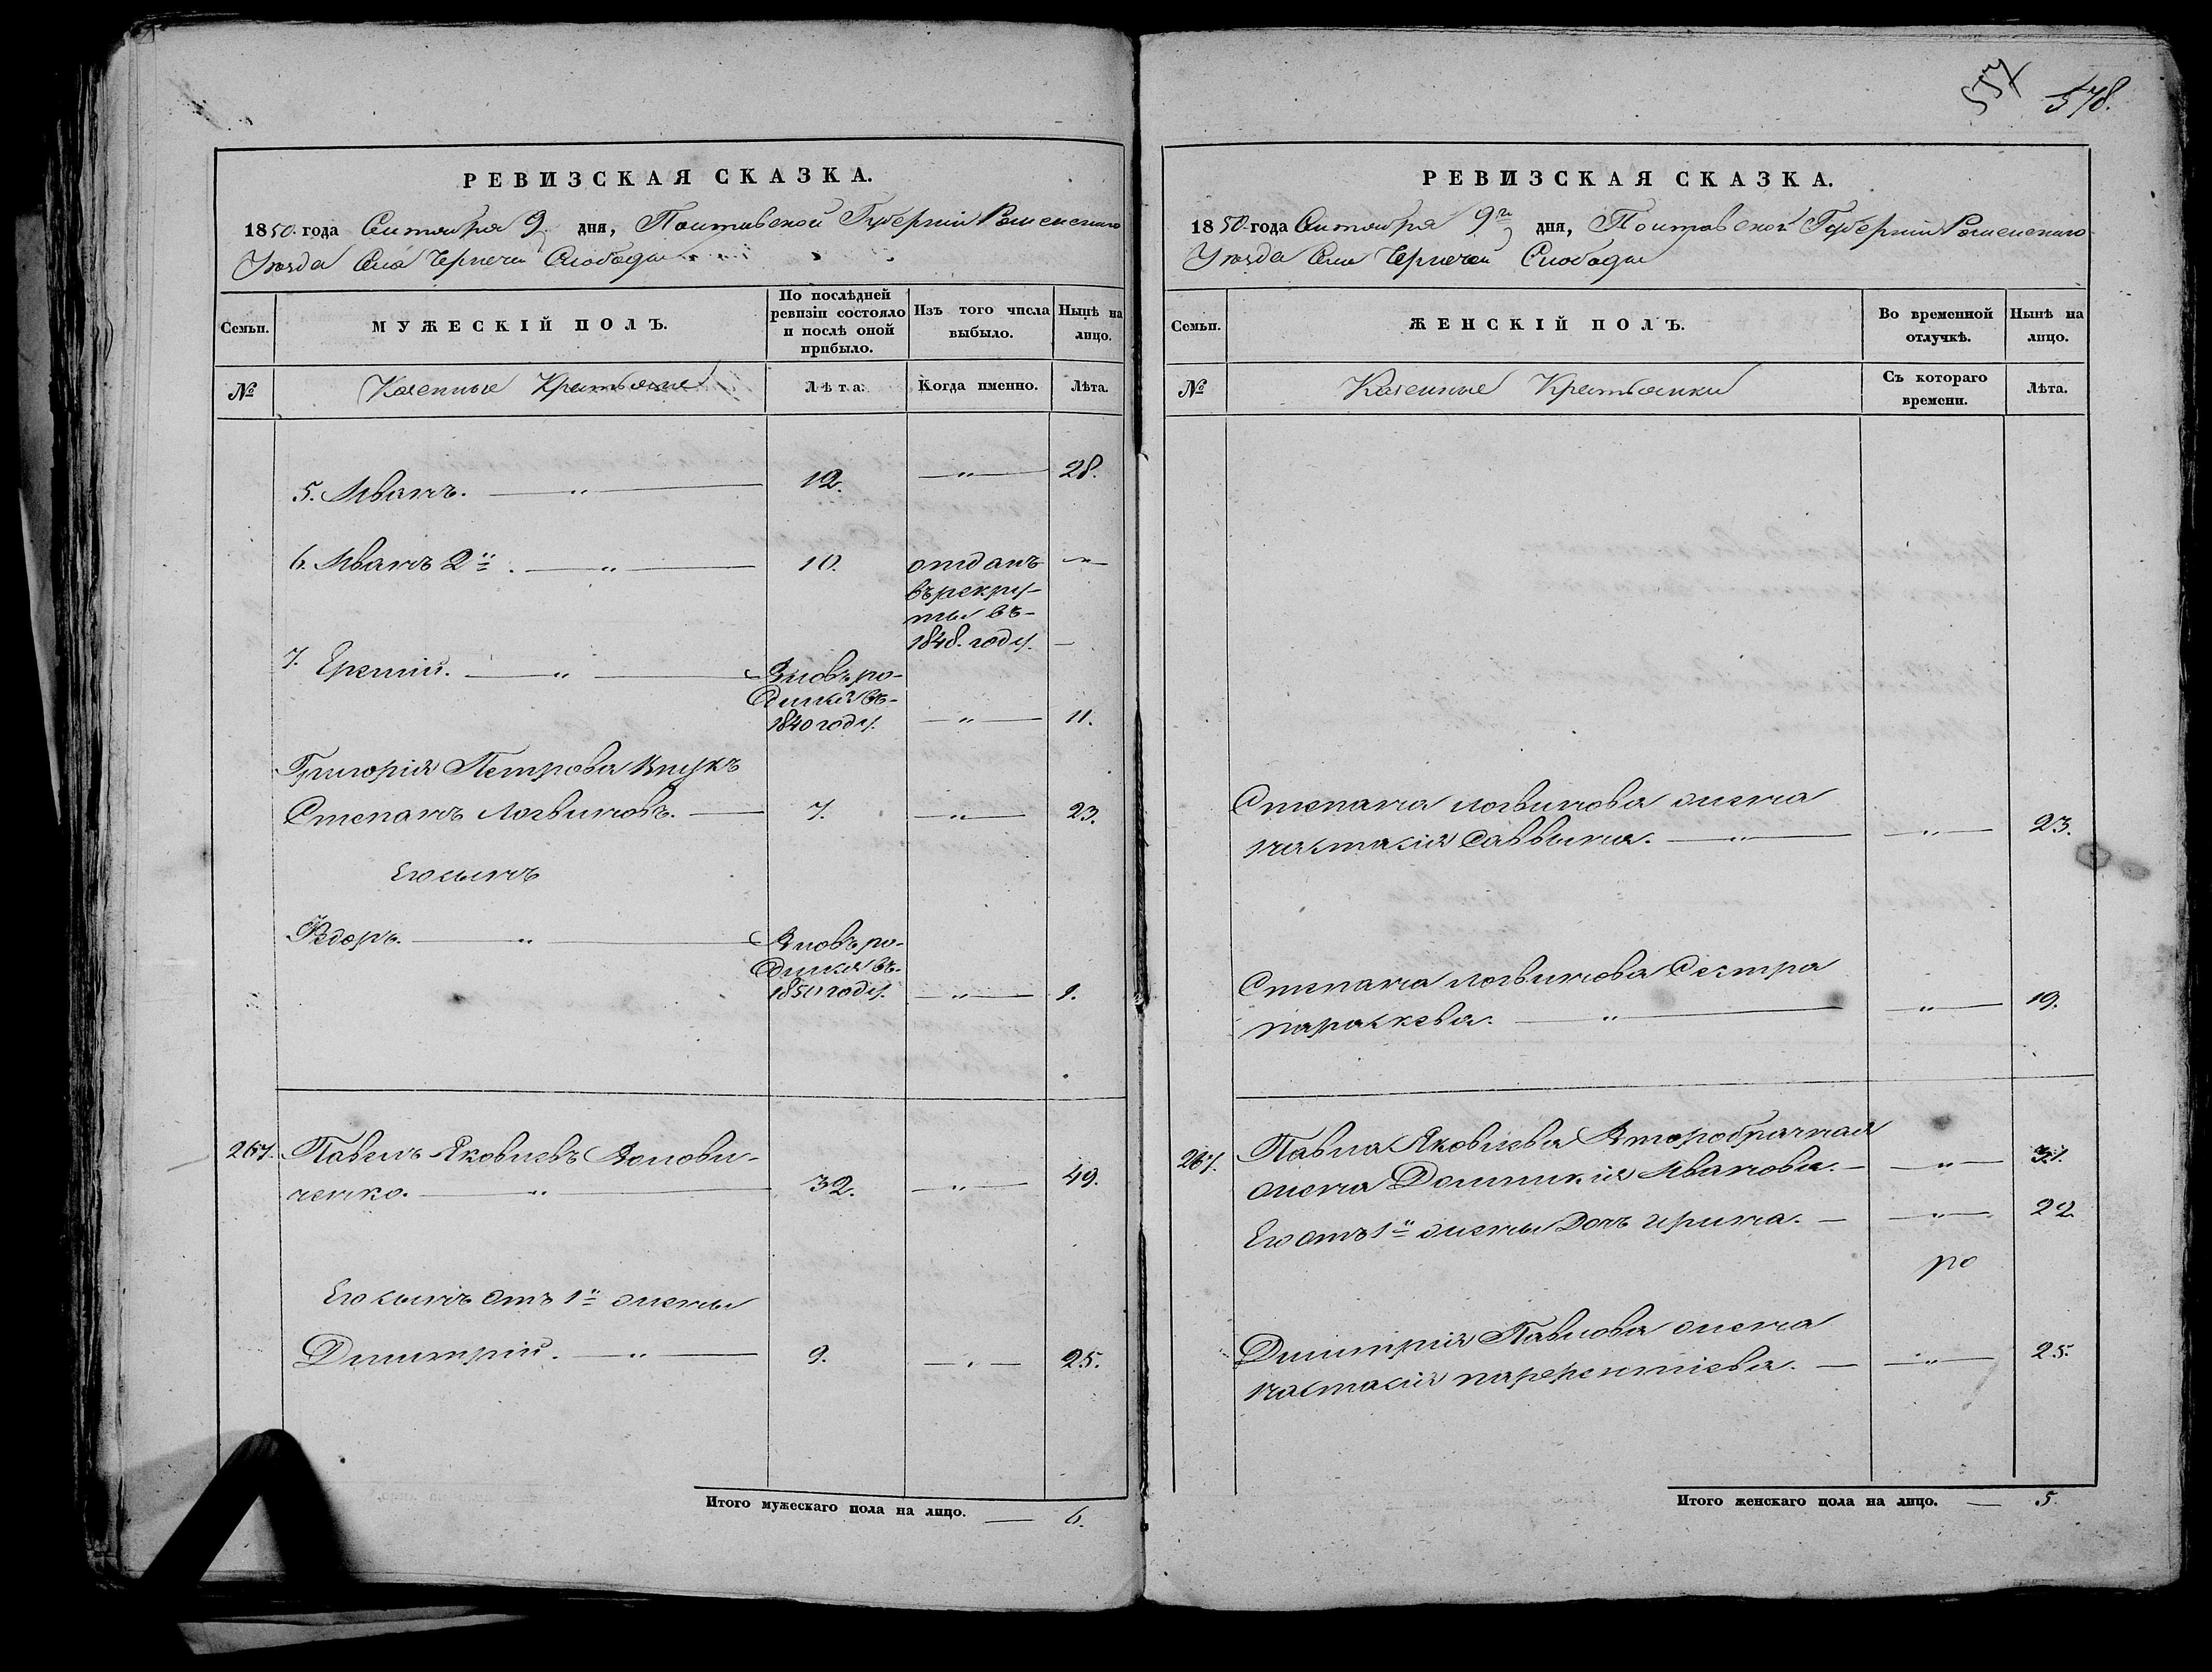 РЕВИЗСКАЯ СКАЗКА.
1850. года Сентября 9 дня, Полтавской Губерніи Роменскаго
Уезда Села Чернечей Слободы
Семьи.
МУЖЕСКІЙ ПОЛЪ.
По послѣдней ревизіи состояло и послѣ оной прибыло.
Изъ того числа выбыло.
Нынѣ на лицо.
№
Казенные Крестьяне
Лѣта.
Когда именно.
Лѣта.
5. Иванъ. — " — 12. — " — 28.
6. Иванъ 2й. — " — 10. отданъ — " —
въ рекру-
ты въ-
1848. году. —
7. Еремій. — " — Вновь ро-
дился въ-
1840 году. — " — 11.
Григорія Петрова Внукъ
Степанъ Логвиновъ. — 7. — " — 23.
Его сынъ
Федоръ. — " — Вновь ро-
дился въ-
1850 году. — " — 1.
267. Павелъ Яковлевъ
ченко. — " — 32. — " — 49.
Его сынъ отъ 1й жены
Димитрій. — " — 9. — " — 25.
Итого мужескаго пола на лицо. — 6.
557 578.
РЕВИЗСКАЯ СКАЗКА.
1850. года Сентября 9го дня, Полтавской Губерніи Роменскаго
Уезда Села Чернечей Слободы
Семьи.
ЖЕНСКІЙ ПОЛЪ.
Во временной отлучкѣ.
Нынѣ на лицо.
№
Казенные Крестьянки
Съ котораго времени.
Лѣта.
Степана Логвинова жена
Настасія Саввина. — " — — " — 23.
Степана Логвинова Сестра
Параскева. — " — — " — 19.
267. Павла Яковлева Второбрачная
жена Домникія Иванова. — — " — 31.
Его отъ 1й жены Дочь Ирина. — — " — 22.
ро
Димитрія Павлова жена
Настасія Парфентіева. — — " — 25.
Итого женскаго пола на лицо. — 5.